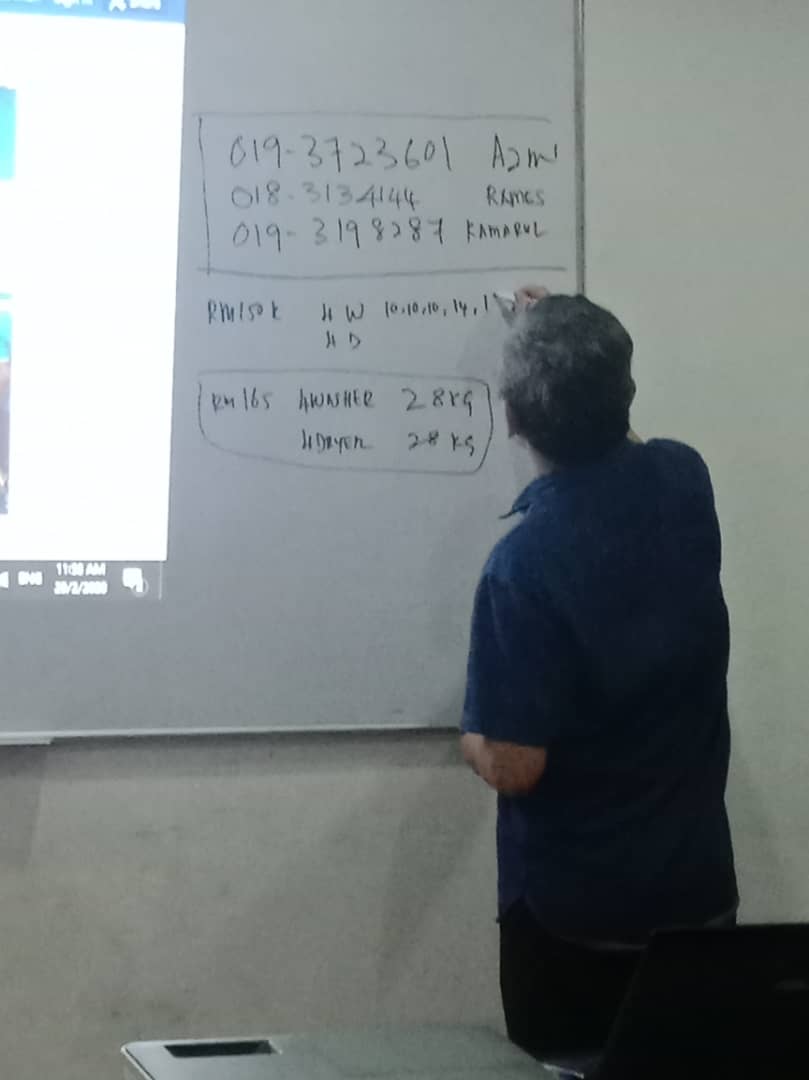 019-3723601 Azmi
018-3134144 RAMES
019-3198287 KAMARUL
RM150K 4W 10,10,10,14,1
4D
RM165 4WASHER 28KG
4DRYER 28KG
ENG
11:38 AM